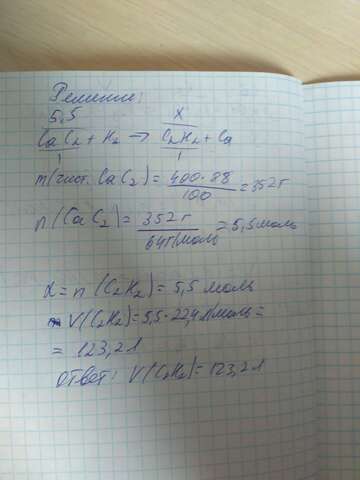 Решение:
5,5 x
CaC₂ + H₂ → C₂H₂ + Ca
1 1
m(чист. CaC₂) = 400·88/100 = 352г
n(CaC₂) = 352г/64г/моль = 5,5моль
x = n(C₂H₂) = 5,5 моль
V(C₂H₂) = 5,5·22,4л/моль =
= 123,2л
Ответ: V(C₂H₂) = 123,2л